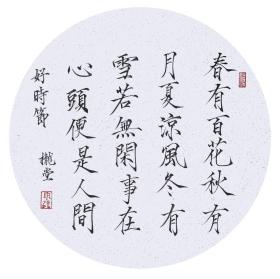 春有百花秋有
月夏涼風冬有
雪若無閑事在
心頭便是人間
好時節